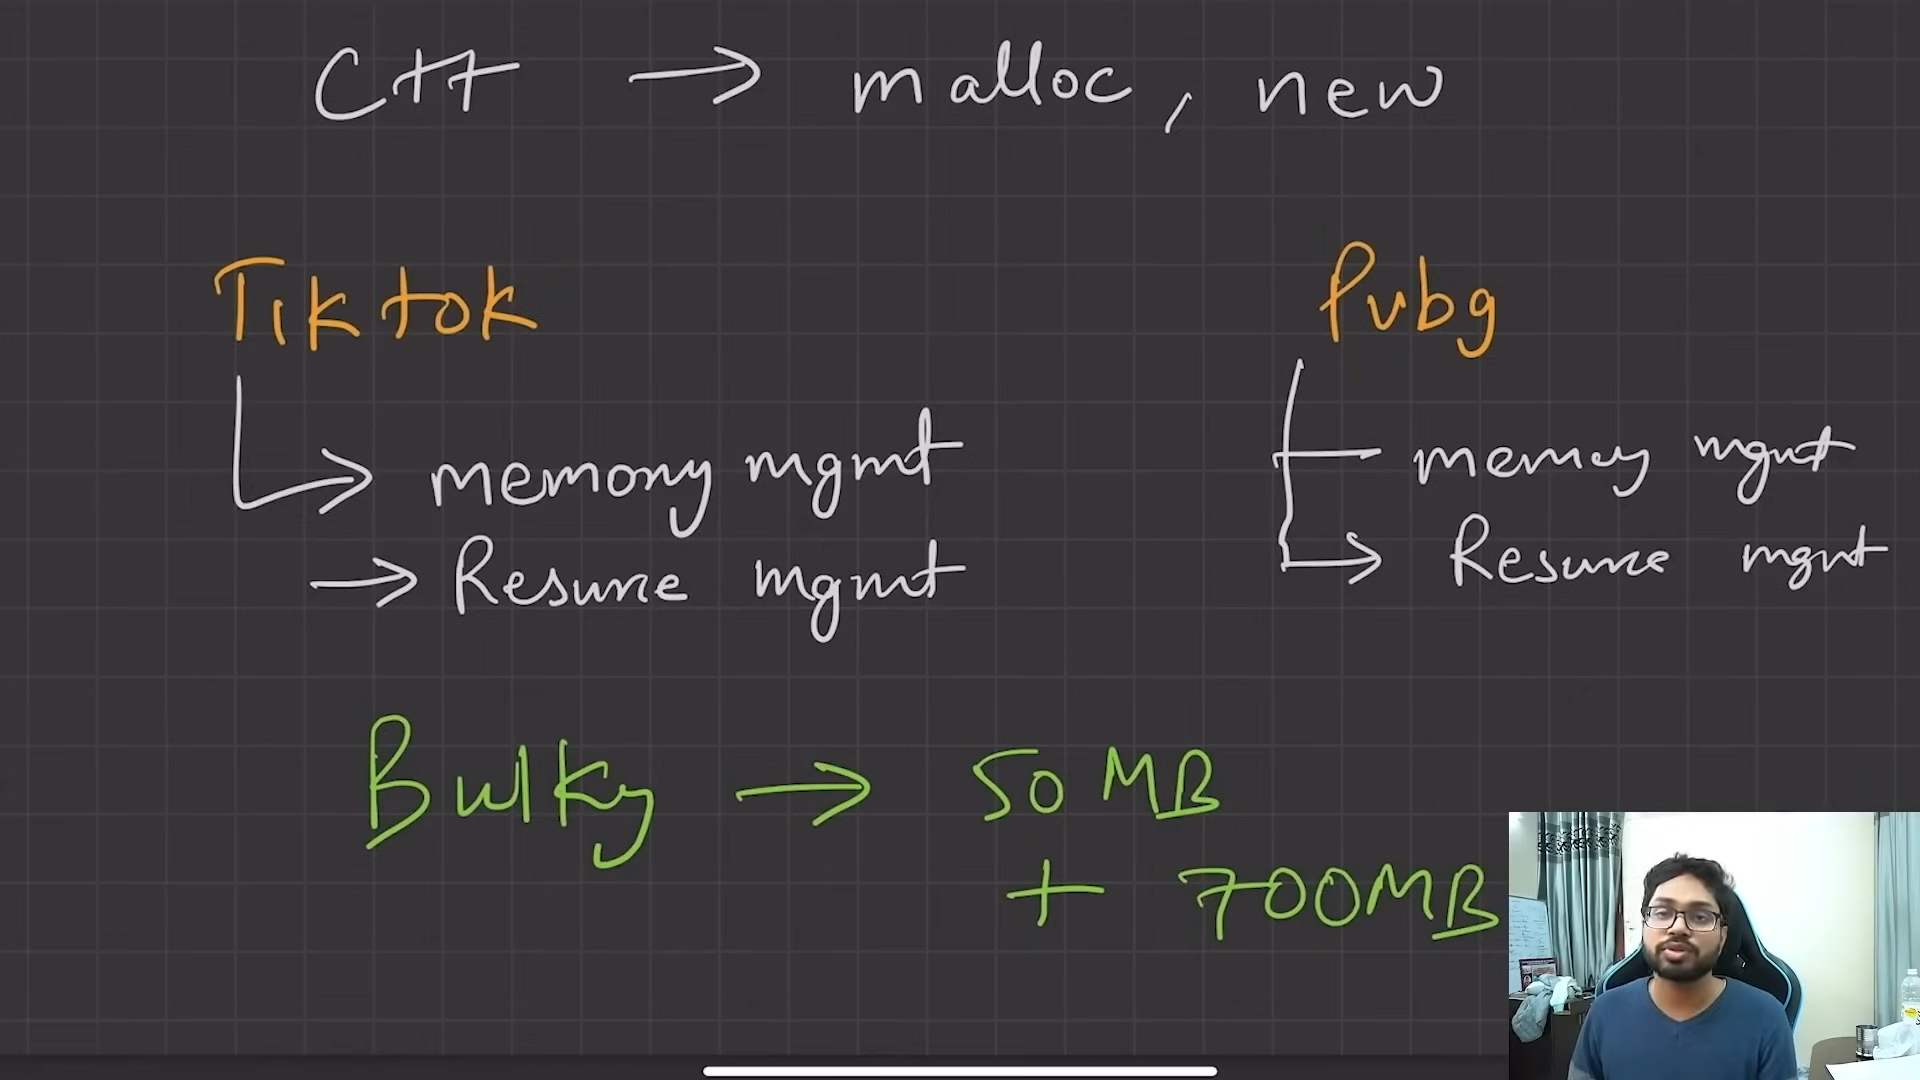 C++ → malloc, new
Tiktok
Pubg
→ memory mgmt
→ Resource mgmt
memory mgmt
→ Resource mgmt
Bulky → 50 MB
+ 700MB